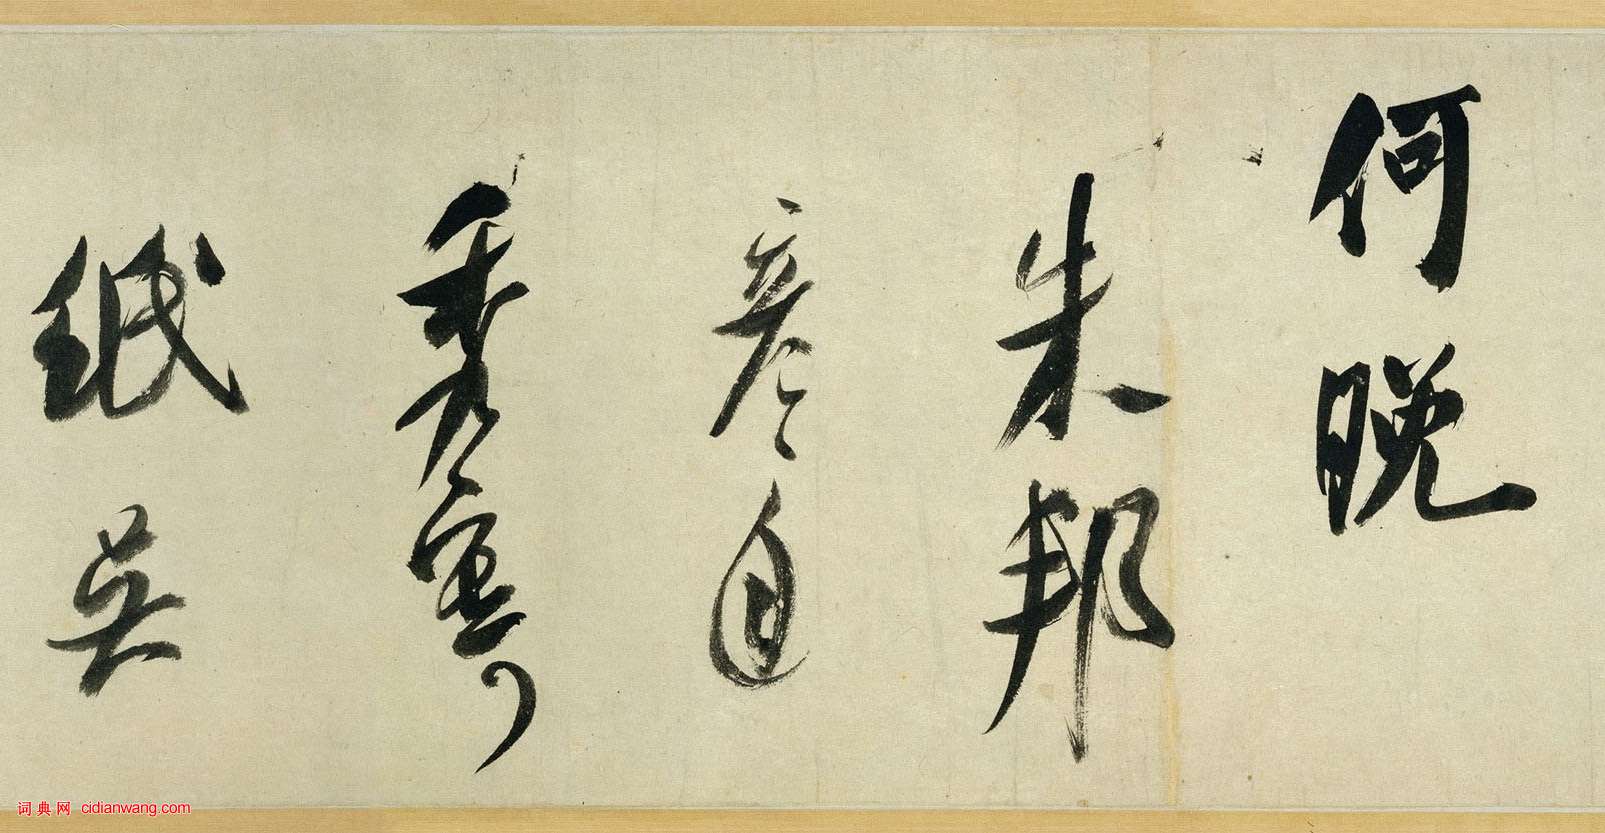 何晚
朱邦
彦自
秦寄
紙吴
词典网 cidianwang.com